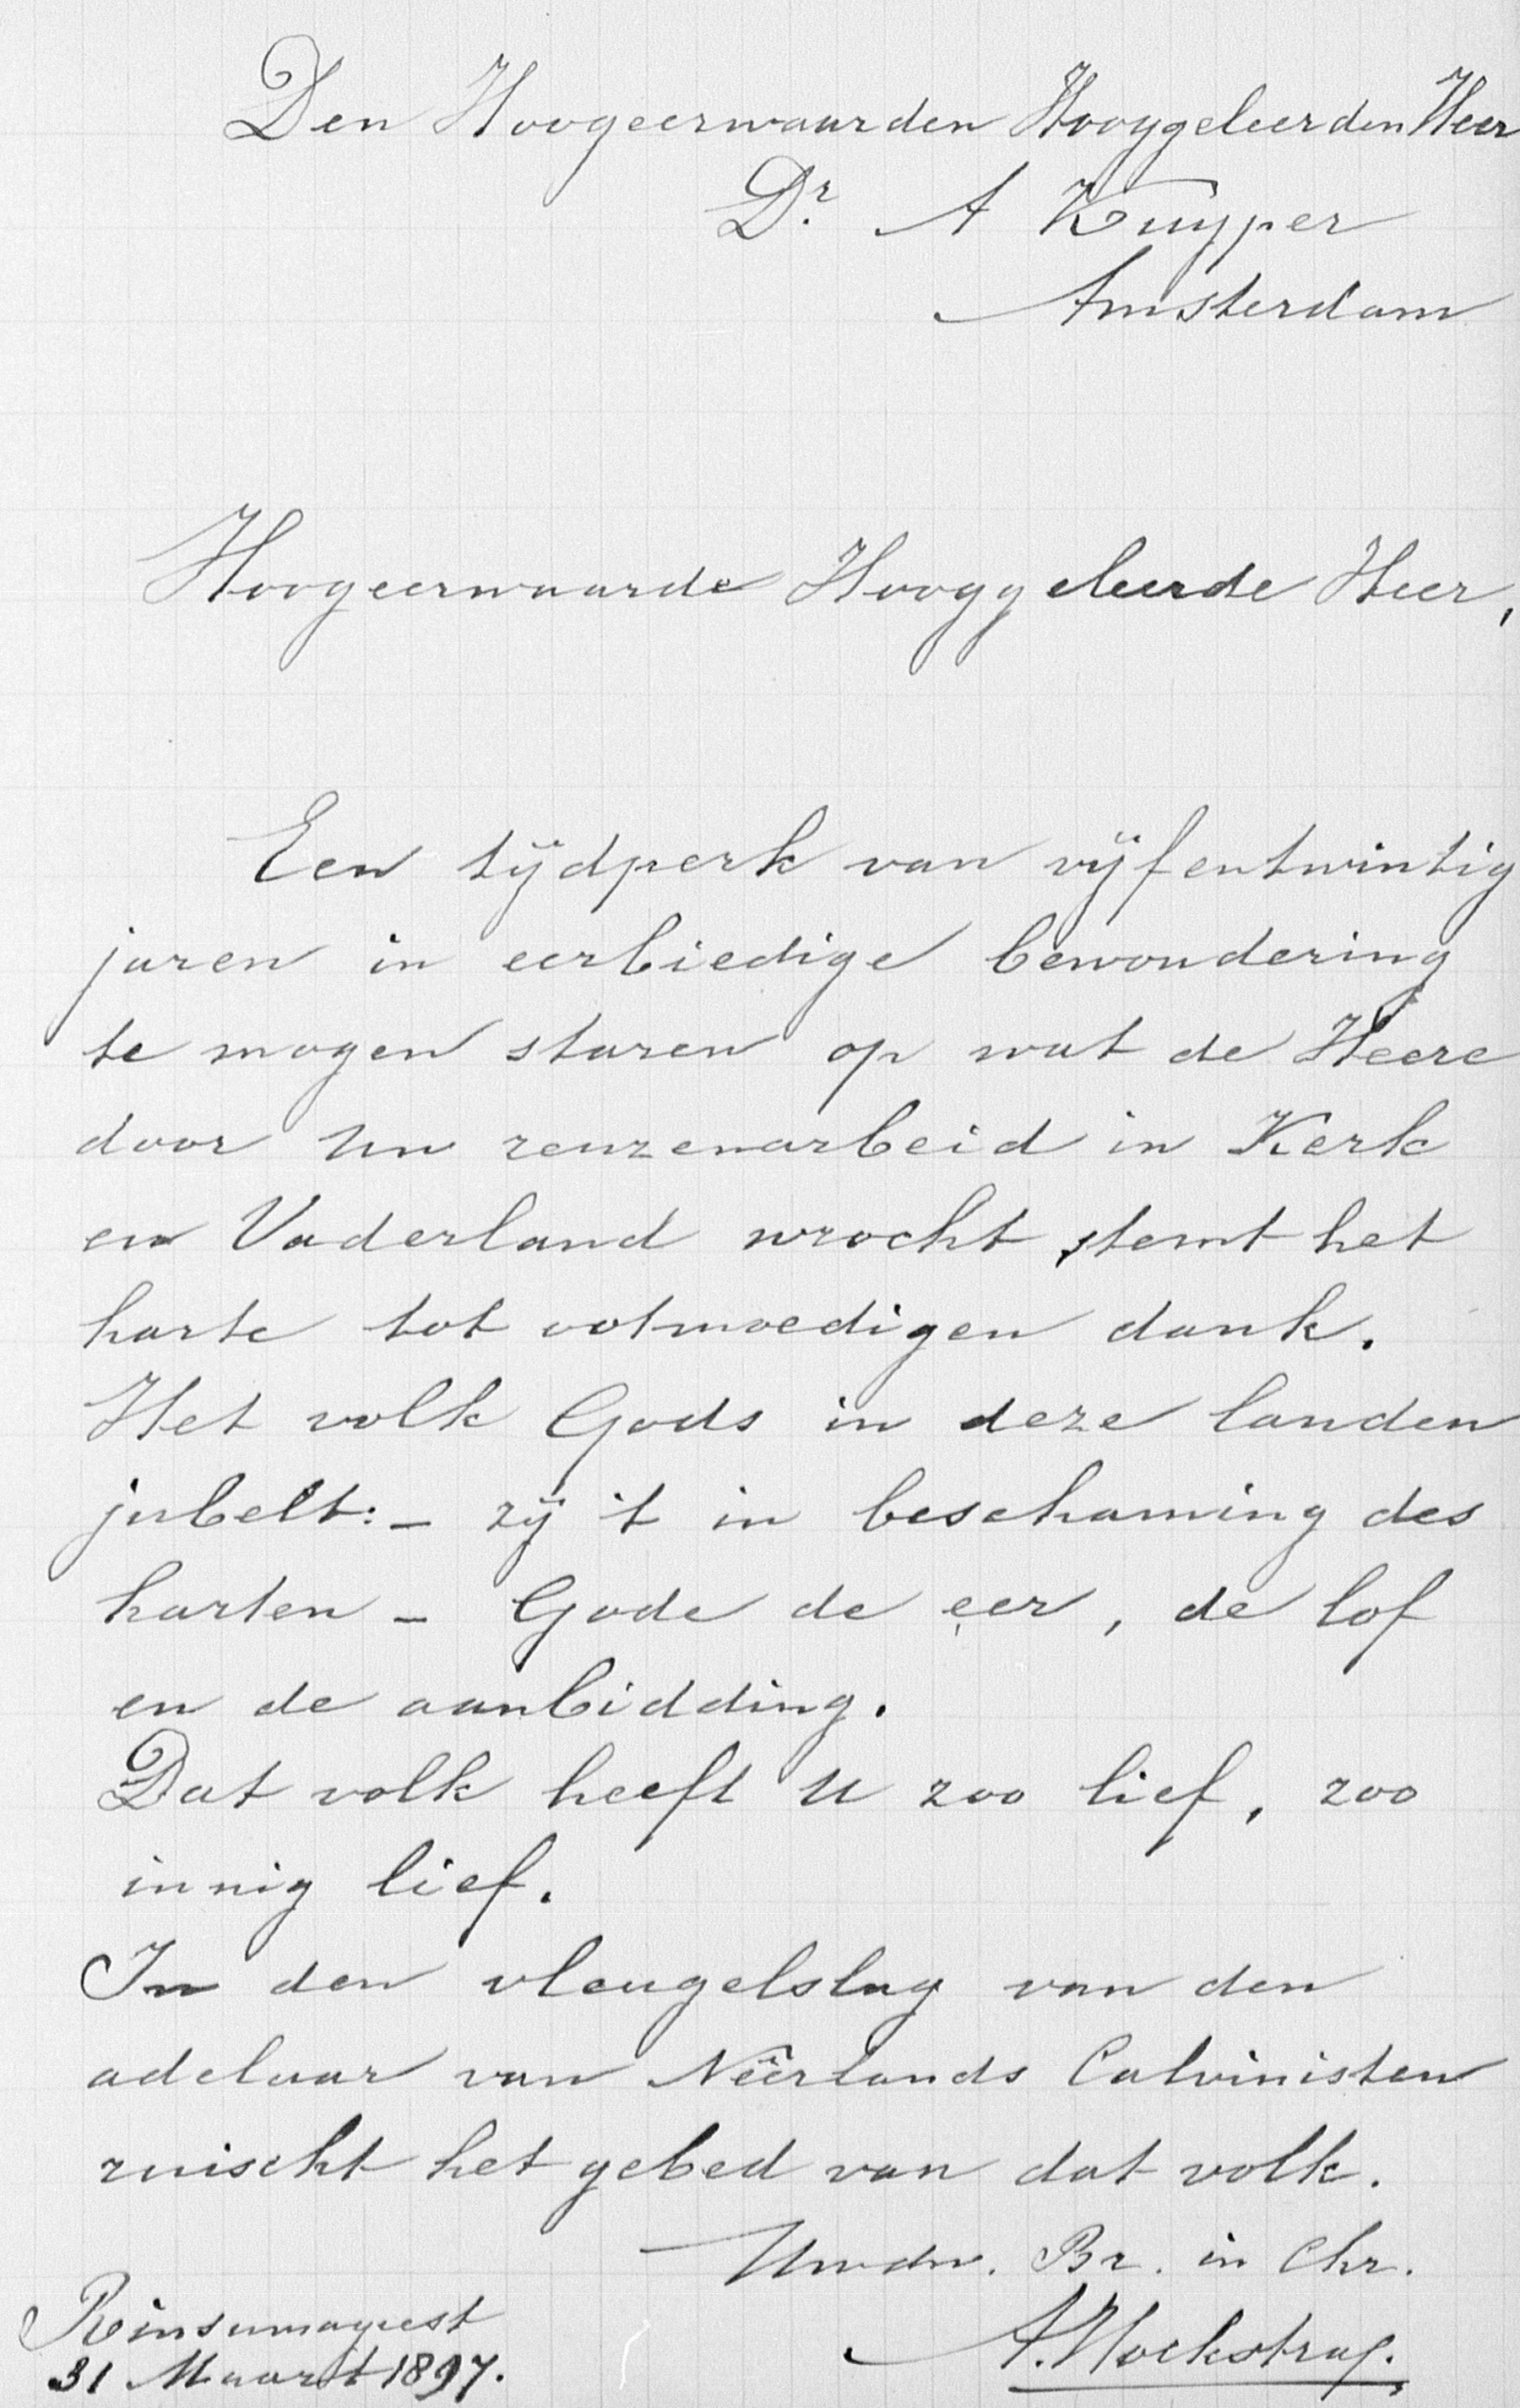 Den Hoogeerwaarden Hooggeleerden Heer
Dr. A Kuyper
Amsterdam
Hoogeerwaarde Hooggeleerde Heer,
Een tijdperk van vijfentwintig
jaren in eerbiedige bewondering
te mogen staren op wat de Heere
door Uw reuzenarbeid in Kerk
en Vaderland wrocht, stemt het
harte tot ootmoedigen dank.
Het volk Gods in deze landen
jubelt: – zij 't in beschaming des
harten – Gode de eer, de lof
en de aanbidding.
Dat volk heeft U zoo lief, zoo
innig lief.
In den vleugelslag van den
adelaar van Neêrlands Calvinisten
ruischt het gebed van dat volk.
Uwdw. Br. in Chr.
A. Hoekstra
Rinsumageest
31 Maart 1897.